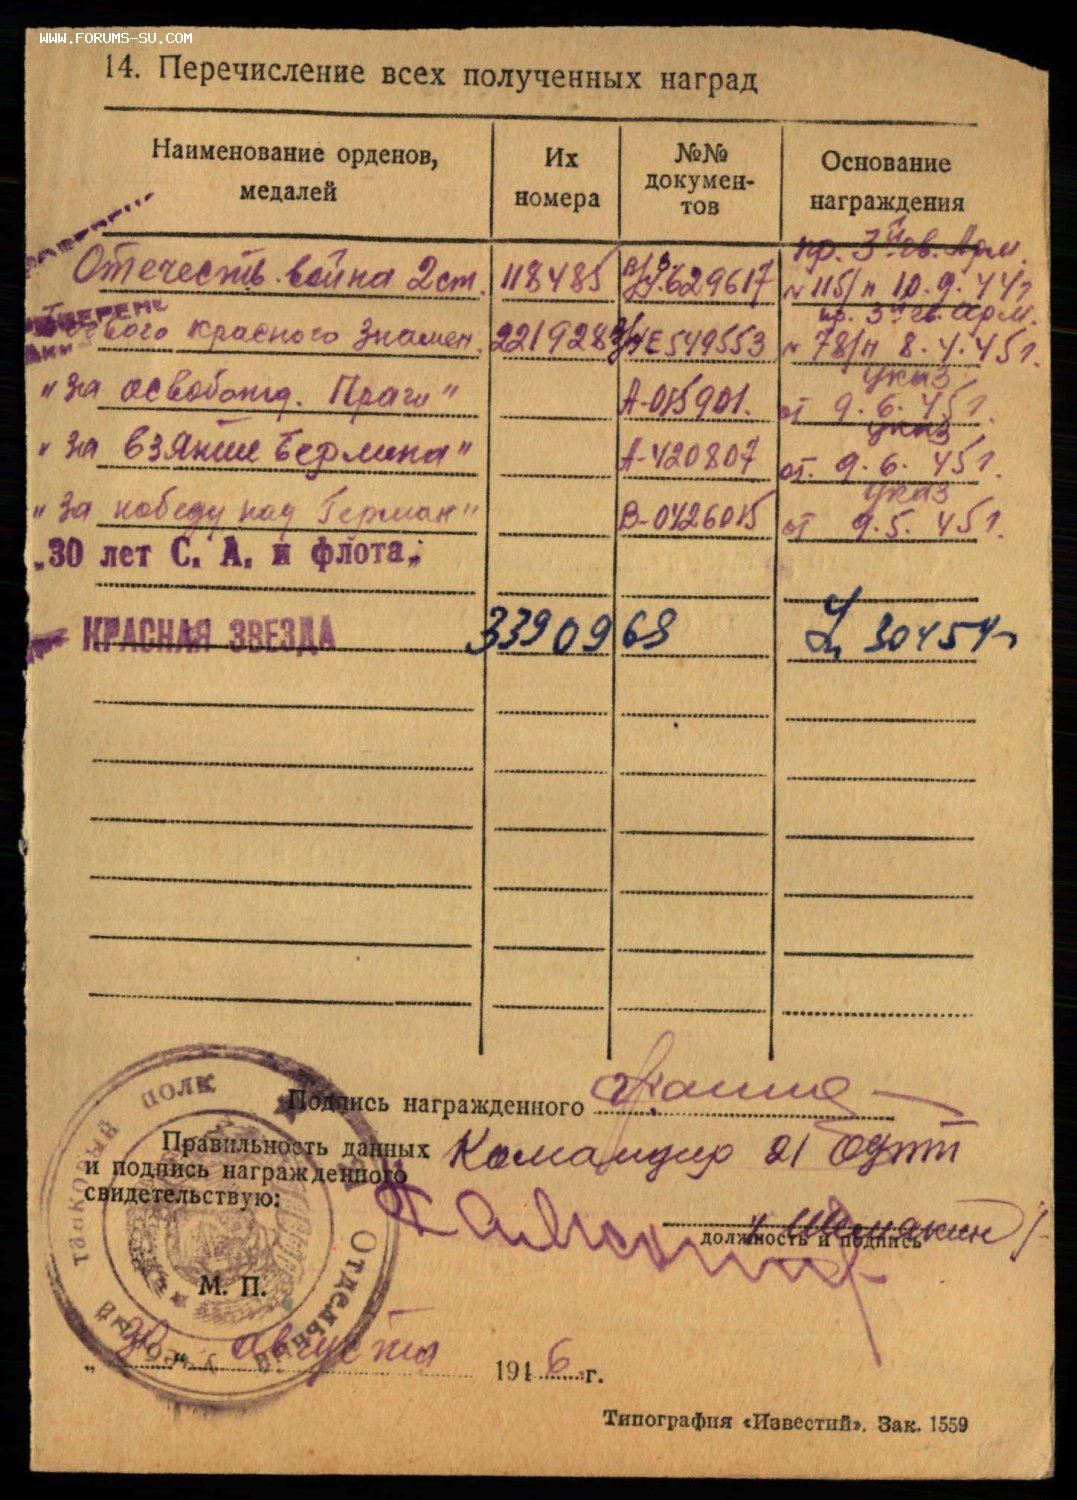 WWW.FORUMS-SU.COM
14. Перечисление всех полученных наград
Наименование орденов, медалей
Их номера
№№ докумен-тов
Основание награждения
пр. 3й гв. Арм.
Отечеств. война 2 ст. 118485 629617 № 115/н 10.9.44 г
пр. 3 гв. арм.
Красного Знамен. 221928 Е 549553 № 78/н 8.4.45 г.
указ
"За освобожд. Праги" А-015901. от 9.6.45 г.
указ
"За взятие Берлина" А-420807 от. 9.6.45 г.
указ
"За победу над Герман" В-0426015 от 9.5.45 г.
"30 лет С. А. и флота"
КРАСНАЯ ЗВЕЗДА 3390969 30454
Подпись награжденного
Правильность данных и подпись награжденного свидетельствую:
Командир 21
должность и подпись
М. П.
танковый полк
Отдельный
"30" августа 1946 г.
Типография «Известий». Зак. 1559